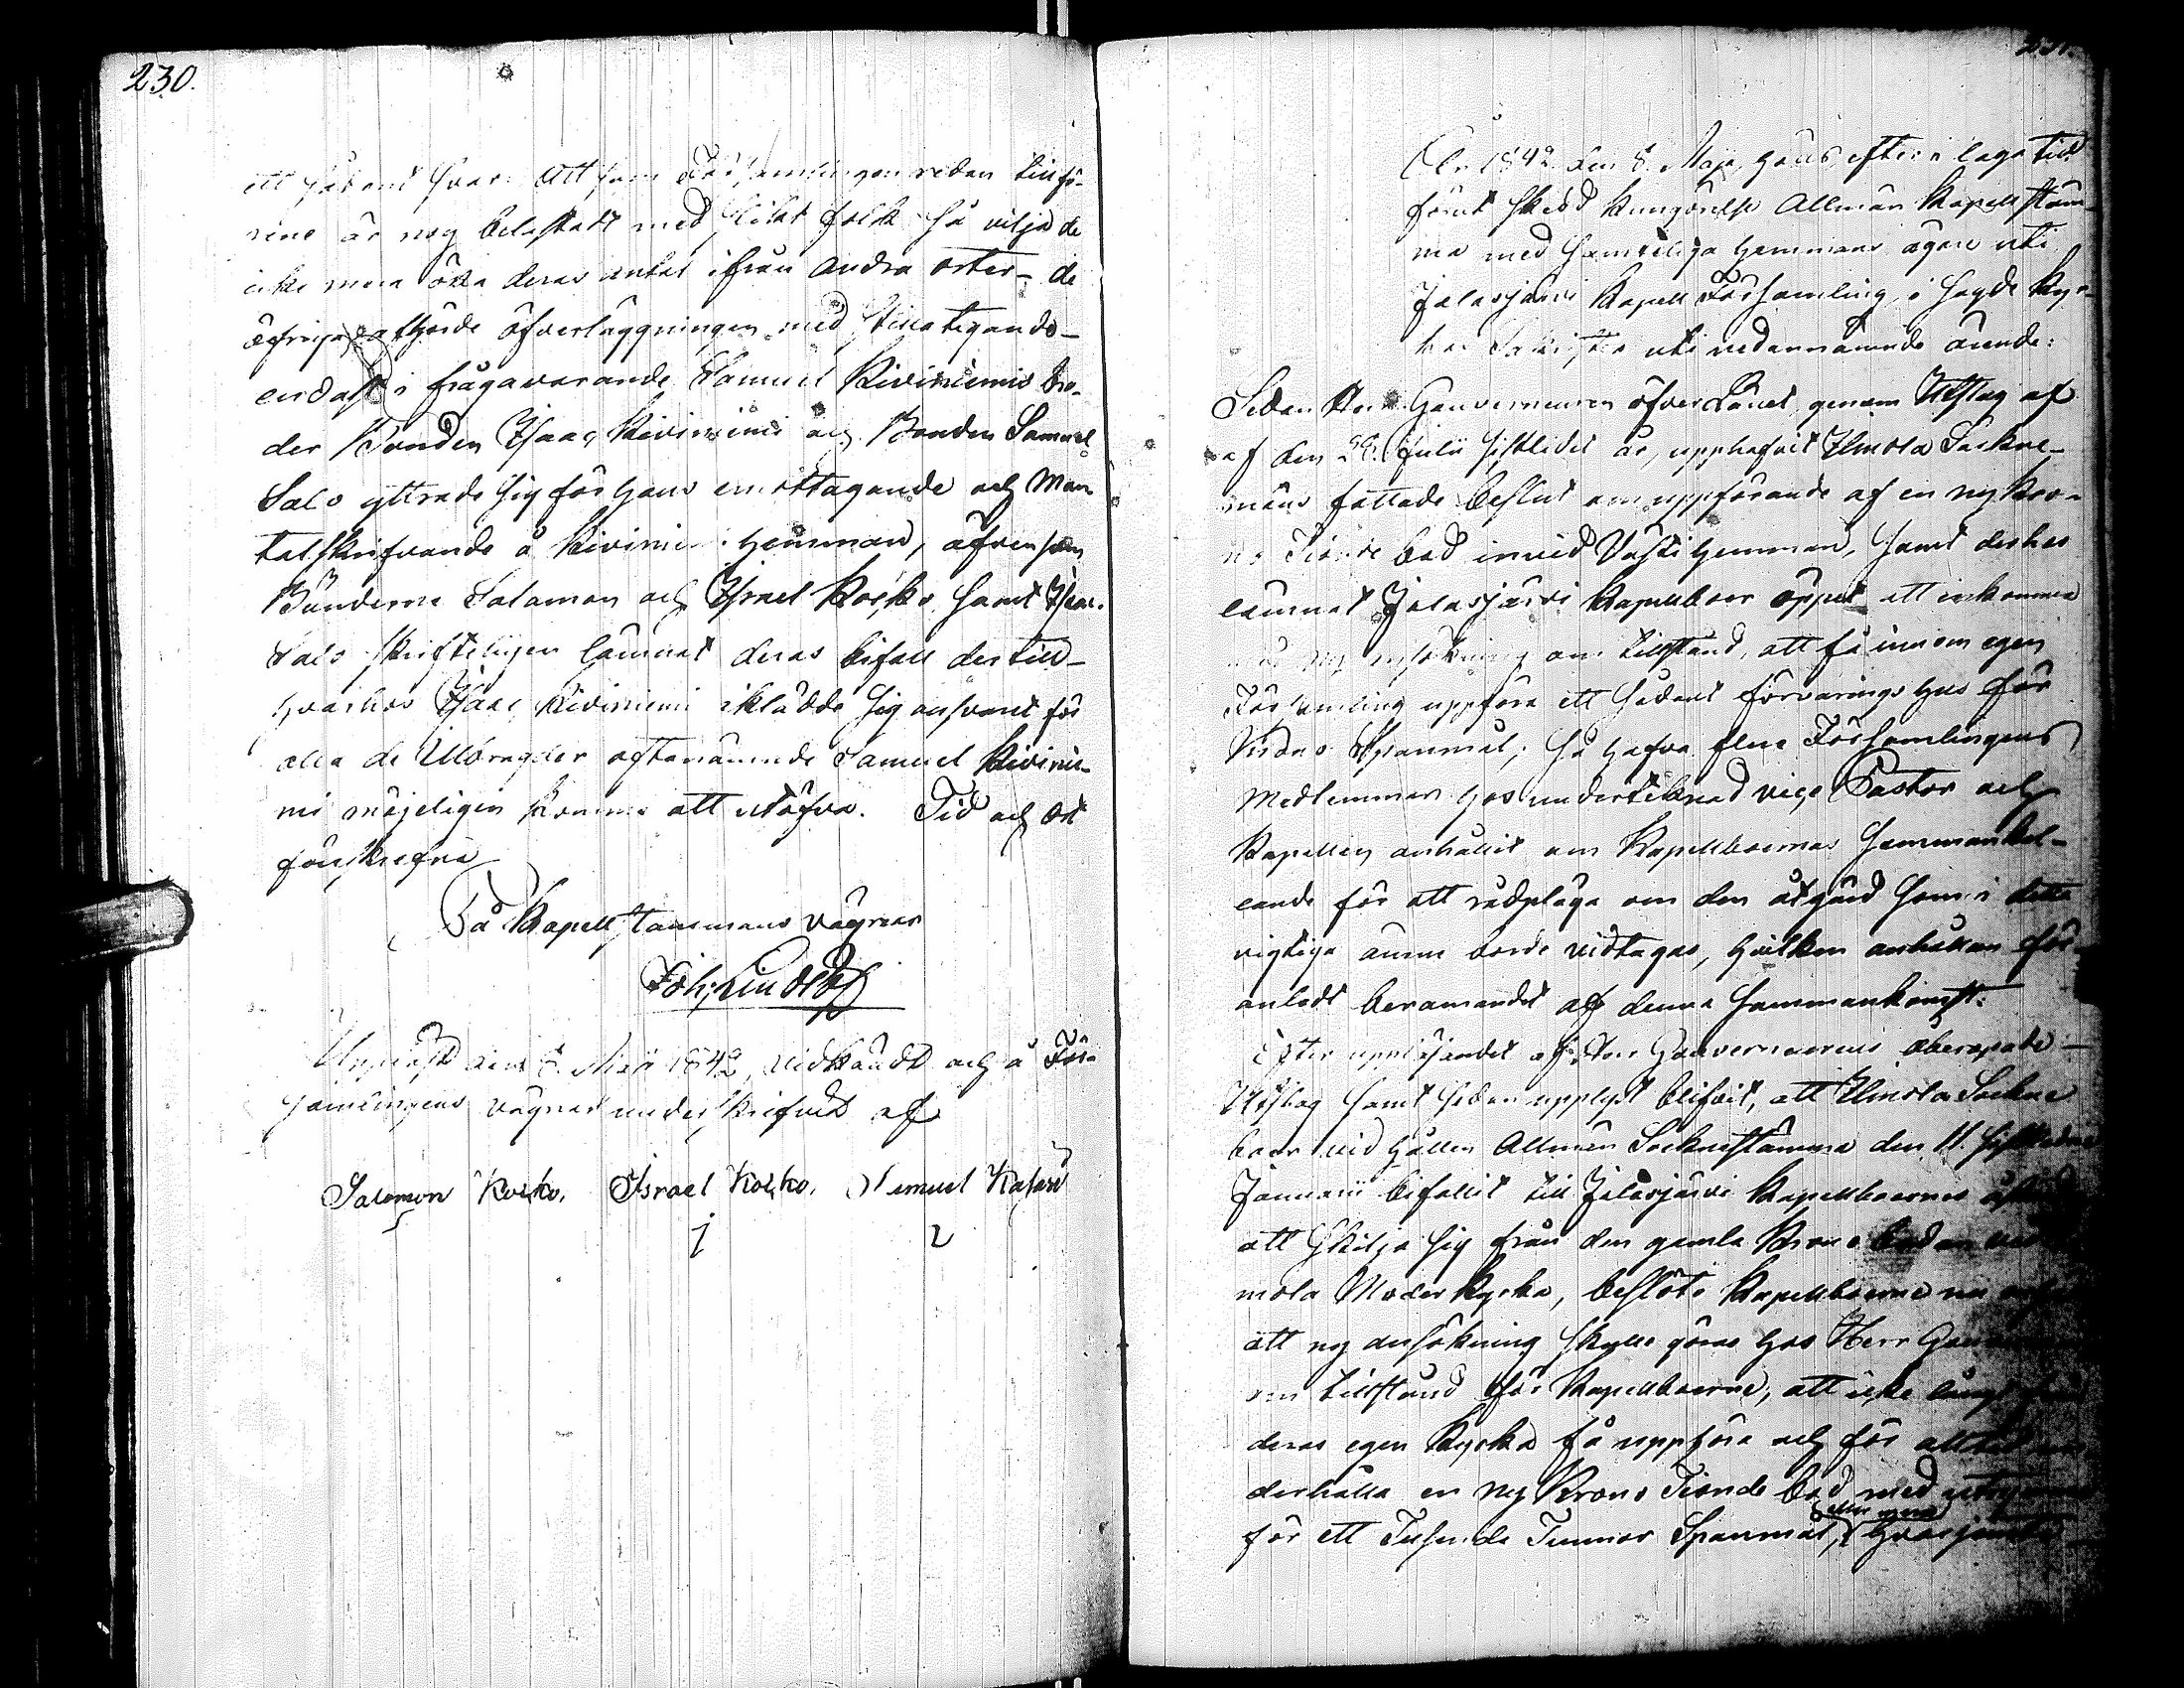 230.
ett sådant svar: Att som Församlingen redan tillfö-
rene är nog belastadt med slikt folk så vilja de
icke mera öka deras antal ifrån andra orter - de
öfriga afhörde öfverläggningen med stillatigande -
endast i frågavarande Samuel Kiviniemis bro-
der Bonden Isaac Kiviniemi och Bonden Samuel
Salo yttrade sig för hans emottagande och Man-
talskrifvande å Kiviniemi hemman, äfvensom
Bönderne Salomon och Israel Koskö samt Isaac
Salo skrifteligen lämnat deras bifall dertill -
hvarhos Isaac Kiviniemi iklädde sig ansvaret för
alla de Utlagder oftanämnde Samuel Kivinie-
mi möjeligen komma att utöfva. Tid och Ort
förskrefne
På Kapellstämmans vägnar
Joh: Lindstedt
Uppläst den 8. Maji 1842, vidkändt och å För-
samlingens vägnar underskrifvit af
Salomon Koskö. Israel Koskö. Samuel Kafari
231.
År 1842 den 8. Maji, hölls efter i laga tid
förut skedd kungörelse Allmän Kapellstäm-
ma med samteliga hemmans ägare uti
Jalasjärvi Kapell Församling, i sagde Kyr-
kas Sakristia uti nedannämnde ärende:
Sedan Herr Gouverneuren öfver Länet, genom Utslag af
af den 28. Julii sistledit år, upphäfvit Ilmola Sockne-
mäns fattade beslut om uppförande af en ny Kro-
no Tionde bod invid Vasti hemman, samt derhos
lämnat Jalasjärvi Kapellboer öppet att inkomma
med ny ansökning om tillstånd, att få innom egen
Församling uppföra ett sådant förvarings hus för
deras Spanmål; så hafva flere Församlingens
Medlemmar hos undertecknad vice Pastor och
Kapellan anhållit om Kapellboernas samman kal-
lande för att rådpläga om den åtgärd som i detta
vigtiga ämne borde vidtagas, hvilken anhållan för-
anledt beramandet af denna sammankomst.
Efter uppläsandet af Herr Gouverneurens åberopade -
Utslag samt sedan upplyst blifvit, att Ilmola Sockne
boer vid hållen Allmän Socknestämma den 11. sistledne
Januarii bifallit till Jalasjärvi Kapellboernes
att skilja sig från den gamla Krono boden vid
mola Moder Kyrka, beslöto Kapellboerne nu
att ny ansökning skulle göras hos Herr
om tillstånd för Kapellboerne, att icke långt ifrån
deras egen Kyrka få uppföra och för alltid un-
derhålla en ny Krono Tionde bod med
för ett Tusende Tunnor Spanmål, eller mera hvarjemte